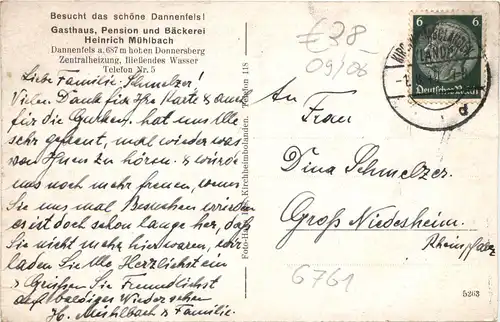 Besucht das schöne Dannenfels!
Gasthaus, Pension und Bäckerei
Heinrich Mühlbach
Dannenfels a. 687 m hohen Donnersberg
Zentralheizung, fließendes Wasser
Telefon Nr. 5
Liebe Familie Schmelzer!
Vielen Dank für Ihre Karte & auch
für die Gurken. hat uns Alle
sehr gefreut, mal wieder was
von Ihnen zu hören. & würde
uns noch mehr freuen, wenn
Sie uns mal Besuchen würden
es ist doch schon lange her, daß
Sie nicht mehr hier waren, wir
laden Sie Alle Herzlichst ein
& Grüßen Sie Freundlichst
auf baldiges Wiedersehen
H. Mühlbach & Familie.
Kirchheimbolanden. Telefon 118
€38-
09/06
6
Deutsches Reich
d
An
Frau
Dina Schmelzer.
Groß Niedesheim.
Rheinpfalz
6761
5263